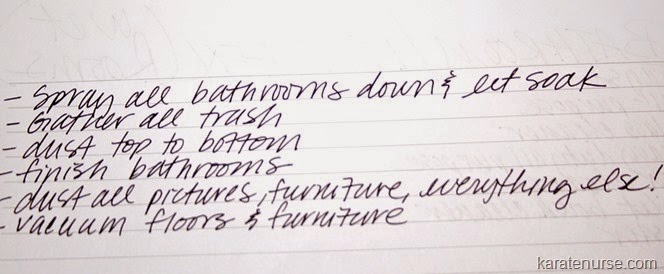 - Spray all bathrooms down & let soak
- Gather all trash
- dust top to bottom
- finish bathrooms
- dust all pictures, furniture, everything else!
- vacuum floors & furniture
karatenurse.com